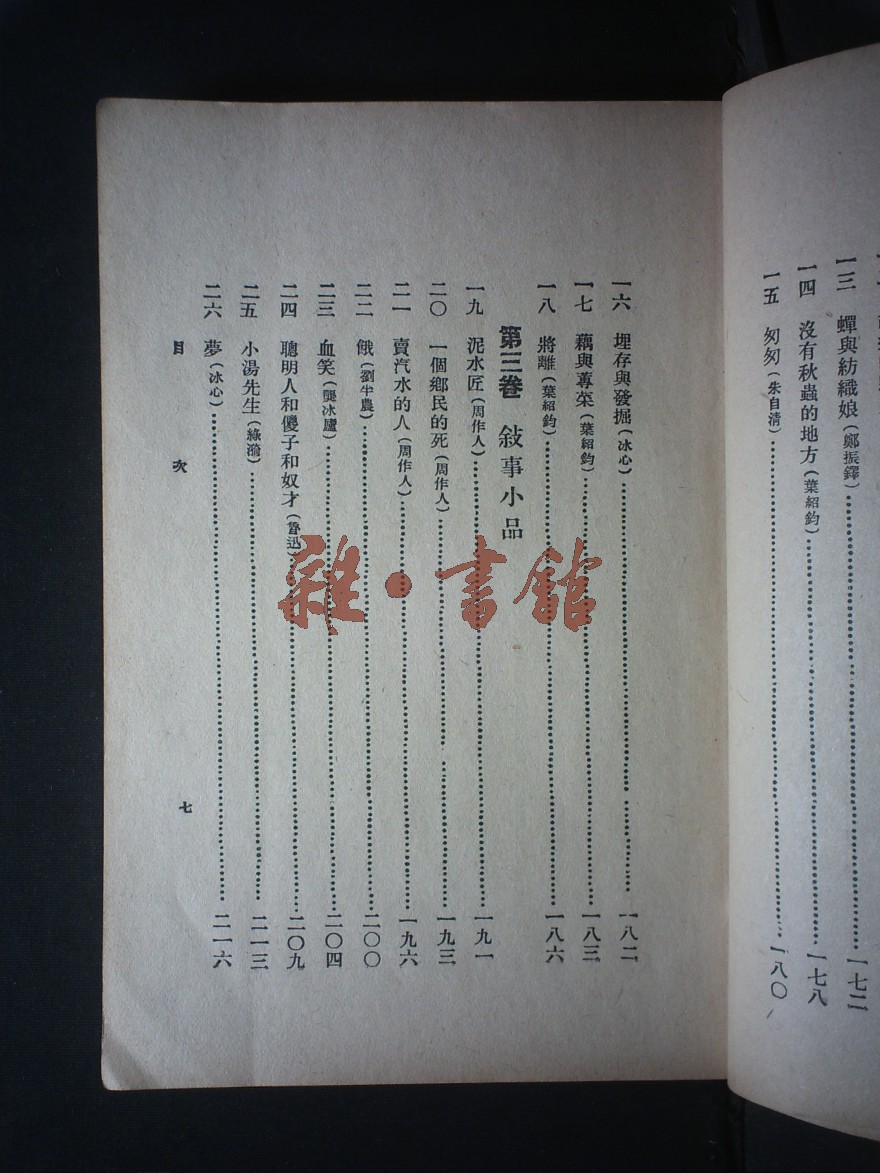 一三 蟬與紡織娘(鄭振鐸)……一七二
一四 沒有秋蟲的地方(葉紹鈞)……一七八
一五 匆匆(朱自清)……一八〇
一六 埋存與發掘(冰心)……一八二
一七 藕與蓴菜(葉紹鈞)……一八三
一八 將離(葉紹鈞)……一八六
第三卷 敍事小品
一九 泥水匠(周作人)……一九一
二〇 一個鄉民的死(周作人)……一九三
二一 賣汽水的人(周作人)……一九六
二二 餓(劉半農)……二〇〇
二三 血笑(龔冰廬)……二〇四
二四 聰明人和傻子和奴才(魯迅)……二〇九
二五 小湯先生(綠漪)……二一三
二六 夢(冰心)……二一六
目次 七
雜·書館